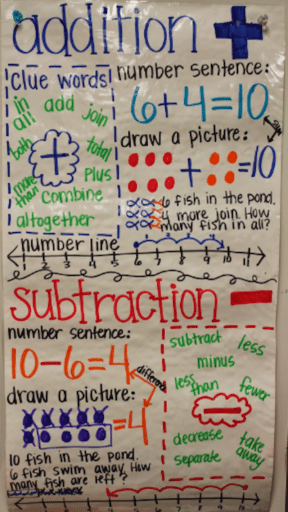 addition +
Clue words!
in all
add
join
both
+
total
plus
more than
combine
altogether
number sentence:
6+4=10
draw a picture:
+
=10
6 fish in the pond.
4 more join. How
many fish in all?
number line
1 2 3 4 5 6 7 8 9 10 11
subtraction −
number sentence:
10−6=4
difference
draw a picture:
=4
10 fish in the pond.
6 fish swim away. How
many fish are left?
subtract
less
minus
less than
fewer
−
decrease
take away
separate